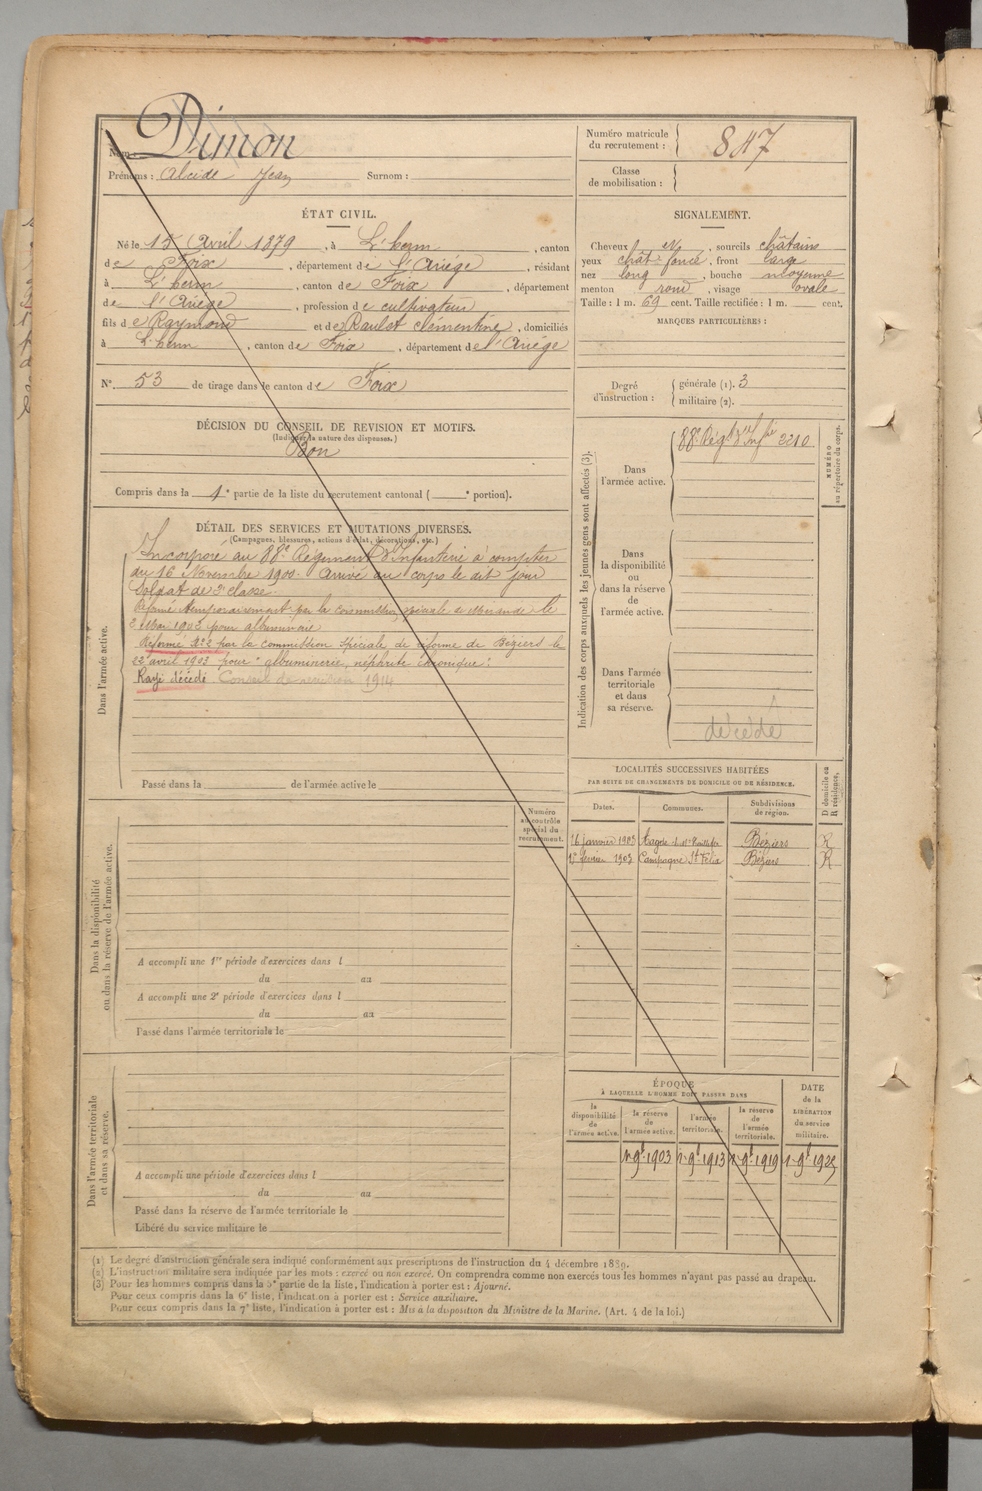 Nom : Dimon
Prénoms : Alcide Jean Surnom :
Numéro matricule du recrutement : 847
Classe de mobilisation :
ÉTAT CIVIL.
Né le 15 Avril 1879, à L'herm, canton
de Foix, département de l'Ariège, résidant
à L'herm, canton de Foix, département
de l'Ariège, profession de cultivateur
fils de Raymond et de Raulet clémentine, domiciliés
à L'herm, canton de Foix, département de l'Ariège
N° 53 de tirage dans le canton de Foix
SIGNALEMENT.
Cheveux et, sourcils châtains
yeux chât. foncé, front large
nez long, bouche moyenne
menton rond, visage ovale
Taille : 1 m. 69 cent. Taille rectifiée : 1 m. cent.
MARQUES PARTICULIÈRES :
Degré d'instruction : générale (1). 3
militaire (2).
DÉCISION DU CONSEIL DE REVISION ET MOTIFS.
(Indiquer la nature des dispenses.)
Bon
Compris dans la 1e partie de la liste du recrutement cantonal ( e portion).
DÉTAIL DES SERVICES ET MUTATIONS DIVERSES.
(Campagnes, blessures, actions d'éclat, décorations, etc.)
Dans l'armée active.
Incorporé au 88e Régiment d'Infanterie à compter
du 16 Novembre 1900. Arrivé au corps le dit jour
Soldat de 2e classe.
Réformé temporairement par la commission spéciale de Mirande le
2 Mai 1902 pour albuminurie
Réformé N°2 par la commission spéciale de réforme de Béziers le
avril 1903 pour "albuminerie, néphrite chronique".
Rayé décédé Conseil de revision 1914
Passé dans la de l'armée active le
Indication des corps auxquels les jeunes gens sont affectés (3).
NUMÉRO au répertoire du corps.
Dans l'armée active.
88e Régt d'Infie 2210
Dans la disponibilité ou dans la réserve de l'armée active.
Dans l'armée territoriale et dans sa réserve.
décédé
LOCALITÉS SUCCESSIVES HABITÉES
PAR SUITE DE CHANGEMENTS DE DOMICILE OU DE RÉSIDENCE.
Dates. Communes. Subdivisions de région. D domicile ou R résidence.
16 janvier 1903 Béziers R
février 1903 Campagne St Félix Béziers R
Dans la disponibilité ou dans la réserve de l'armée active.
Numéro au contrôle spécial du recrutement.
A accompli une 1re période d'exercices dans l
du au
A accompli une 2e période d'exercices dans l
du au
Passé dans l'armée territoriale le
Dans l'armée territoriale et dans sa réserve.
A accompli une période d'exercices dans l
du au
Passé dans la réserve de l'armée territoriale le
Libéré du service militaire le
ÉPOQUE
À LAQUELLE L'HOMME DOIT PASSER DANS
la disponibilité de l'armée active. la réserve de l'armée active. l'armée territoriale. la réserve de l'armée territoriale. DATE de la LIBÉRATION du service militaire.
1er 9bre 1903 1er 9bre 1913 1er 9bre 1919 1er 9bre 1925
(1) Le degré d'instruction générale sera indiqué conformément aux prescriptions de l'instruction du 4 décembre 1889.
(2) L'instruction militaire sera indiquée par les mots : exercé ou non exercé. On comprendra comme non exercés tous les hommes n'ayant pas passé au drapeau.
(3) Pour les hommes compris dans la 5e partie de la liste, l'indication à porter est : Ajourné.
Pour ceux compris dans la 6e liste, l'indication à porter est : Service auxiliaire.
Pour ceux compris dans la 7e liste, l'indication à porter est : Mis à la disposition du Ministre de la Marine. (Art. 4 de la loi.)